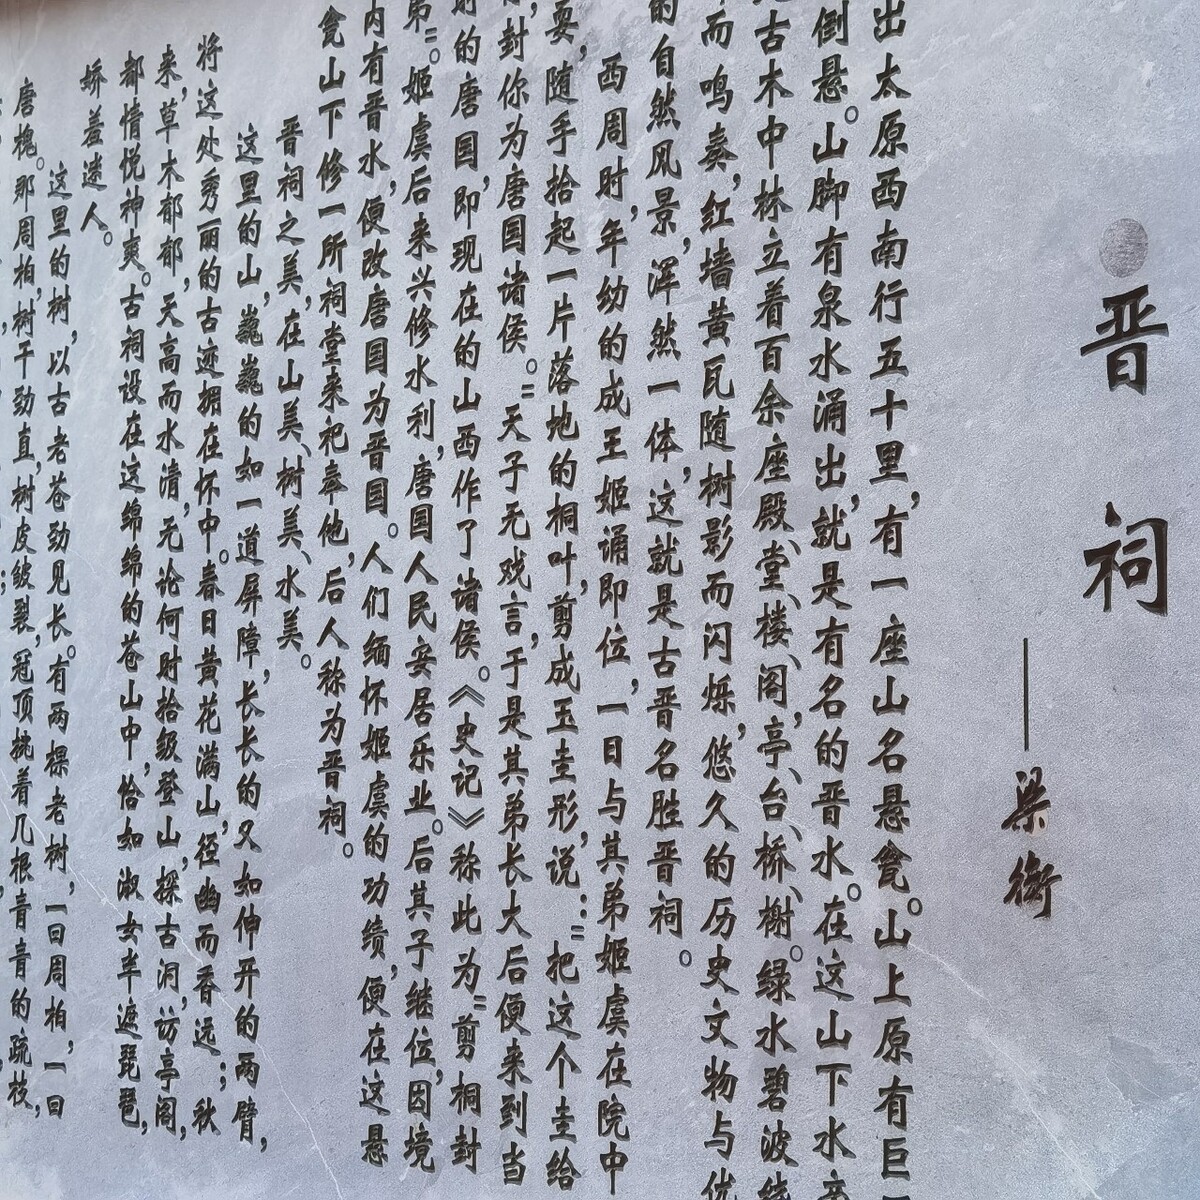 晋祠
——梁衡
出太原西南行五十里，有一座山名悬瓮。山上原有巨
倒悬。山脚有泉水涌出，就是有名的晋水。在这山下水
古木中林立着百余座殿、堂、楼、阁，亭、台、桥、榭。绿水碧波绕
而鸣奏，红墙黄瓦随树影而闪烁，悠久的历史文物与优
的自然风景，浑然一体，这就是古晋名胜晋祠。
西周时，年幼的成王姬诵即位，一日与其弟姬虞在院中
耍，随手拾起一片落地的桐叶，剪成玉圭形，说："把这个圭给
封你为唐国诸侯。"天子无戏言，于是其弟长大后便来到当
的唐国，即现在的山西作了诸侯。《史记》称此为"剪桐封
弟"。姬虞后来兴修水利，唐国人民安居乐业。后其子继位，因境
内有晋水，便改唐国为晋国。人们缅怀姬虞的功绩，便在这悬
瓮山下修一所祠堂来祀奉他，后人称为晋祠。
晋祠之美，在山美、树美、水美。
这里的山，巍巍的如一道屏障，长长的又如伸开的两臂，
将这处秀丽的古迹拥在怀中。春日黄花满山，径幽而香远；秋
来，草木郁郁，天高而水清，无论何时拾级登山，探古洞，访亭阁，
都情悦神爽。古祠设在这绵绵的苍山中，恰如淑女半遮琵琶，
娇羞迷人。
这里的树，以古老苍劲见长。有两棵老树，一曰周柏，一曰
唐槐。那周柏，树干劲直，树皮皱裂，冠顶挑着几根青青的疏枝，